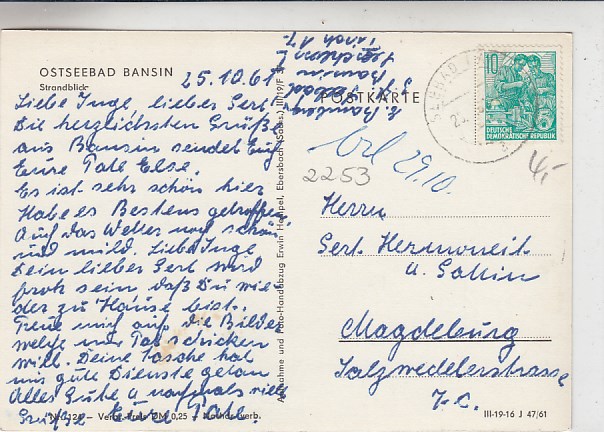 OSTSEEBAD BANSIN
Strandblick
25.10.61
Liebe Inge, lieber Gert
Die herzlichsten Grüße
aus Bansin sendet Euch
Eure Tate Else.
Es ist sehr schön hier
Habe es Bestens getroffen
Auf das Wetter noch schön
und mild. Liebe Inge
Dein lieber Gert wird
froh sein daß Du wie-
der zu Hause bist.
Freue mich auf die Bilder
welche mir Tat schicken
will. Deine Tasche hat
uns gute Dienste getan
Alles Gute u. nochmals viele
Grüße Eure Tate.
Verbr.-Preis DM 0,25
Aufnahme und Foto-Handabzug Erwin Hempel, Ebersbach (Sachs.) III/19/F
POSTKARTE
Bansin
SEEBAD
10
DEUTSCHE
DEMOKRATISCHE REPUBLIK
29.10.
2253
4,-
Herrn
Gert
u. Gattin
Magdeburg
Salzwedelerstrasse
7c.
III-19-16 J 47/61